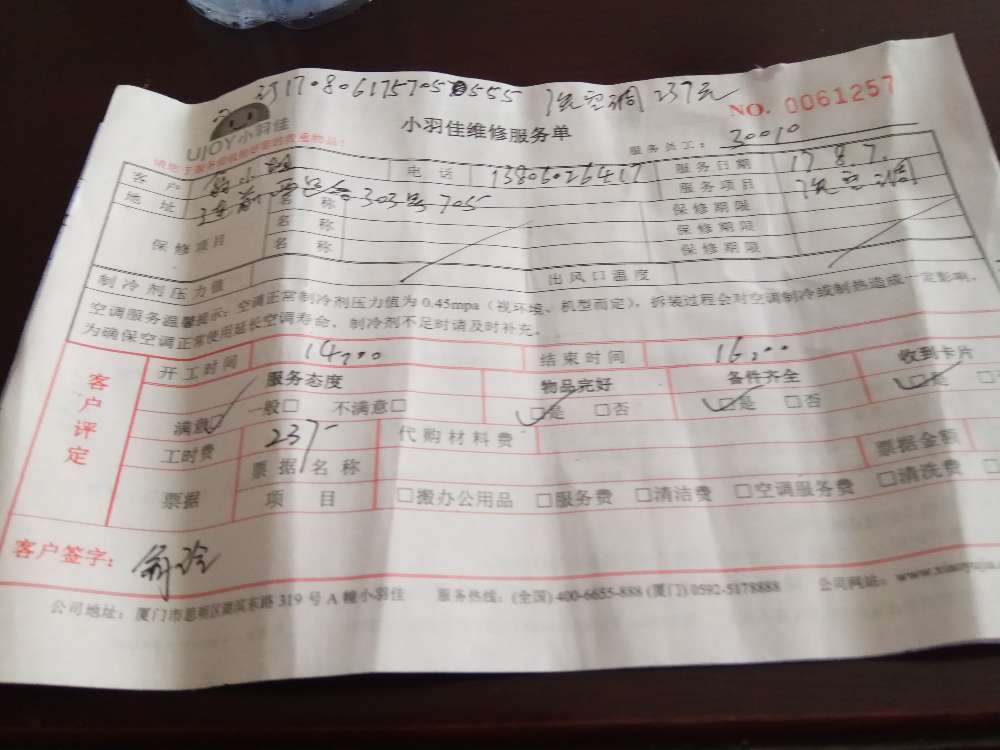 洗空调 237元
NO. 0061257
UJOY小羽佳
小羽佳维修服务单
服务员工: 30010
客户 电话 13806026417 服务日期 17.8.7.
地址 303号705 服务项目 洗空调
保修项目 名称 保修期限
名称 保修期限
名称 保修期限
制冷剂压力值 出风口温度
空调服务温馨提示: 空调正常制冷剂压力值为 0.45mpa (视环境、机型而定), 拆装过程会对空调制冷或制热造成一定影响,
为确保空调正常使用延长空调寿命, 制冷剂不足时请及时补充。
客户评定
开工时间 14:00 结束时间 16:00
服务态度 物品完好 备件齐全 收到卡片
满意□ 一般□ 不满意□ □是 □否 □是 □否 □是
工时费 237- 代购材料费
票据 票据名称 票据金额
项目 □搬办公用品 □服务费 □清洁费 □空调服务费 □清洗费
客户签字:
公司地址: 厦门市思明区莲前东路 319 号 A 幢小羽佳 服务热线: (全国) 400-6655-888 (厦门) 0592-5178888 公司网站: